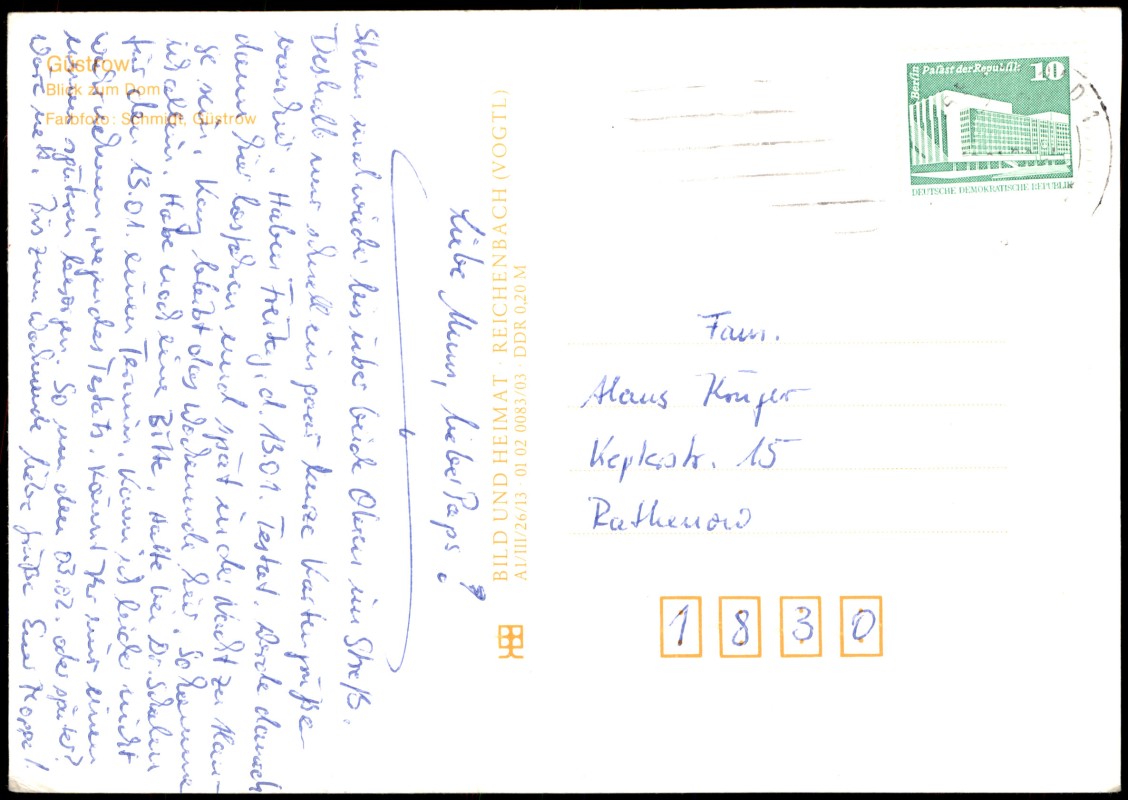 Güstrow
Blick zum Dom
Farbfoto: Schmidt, Güstrow
Liebe Mum, lieber Paps!
Stehen mal wieder bis über beide Ohren im Streß.
Deshalb nur schnell ein paar kurze Kartengrüße
von hier. Haben Freitag, d. 13.01. Testat. Werde danach
dann hier losfahren und spät in der Nacht zu Hau-
se sein. Kay bleibt das Wochenende hier. So komme
ich allein. Habe noch eine Bitte. Hatte bei Dr.
für den 13.01. einen Termin. Kann ich leider nicht
wahrnehmen, wegen des Testats. Könnt Ihr mir einen
neuen später besorgen. So um den 03.02. oder später?
Wäre nett. Bis zum Wochenende liebe Grüße Euer
BILD UND HEIMAT · REICHENBACH (VOGTL)
A1/III/26/13 · 01 02 0083/03 · DDR 0,20 M
Berlin Palast der Republik 10
DEUTSCHE DEMOKRATISCHE REPUBLIK
Fam.
Klaus Krüger
Keplerstr. 15
Rathenow
1 8 3 0